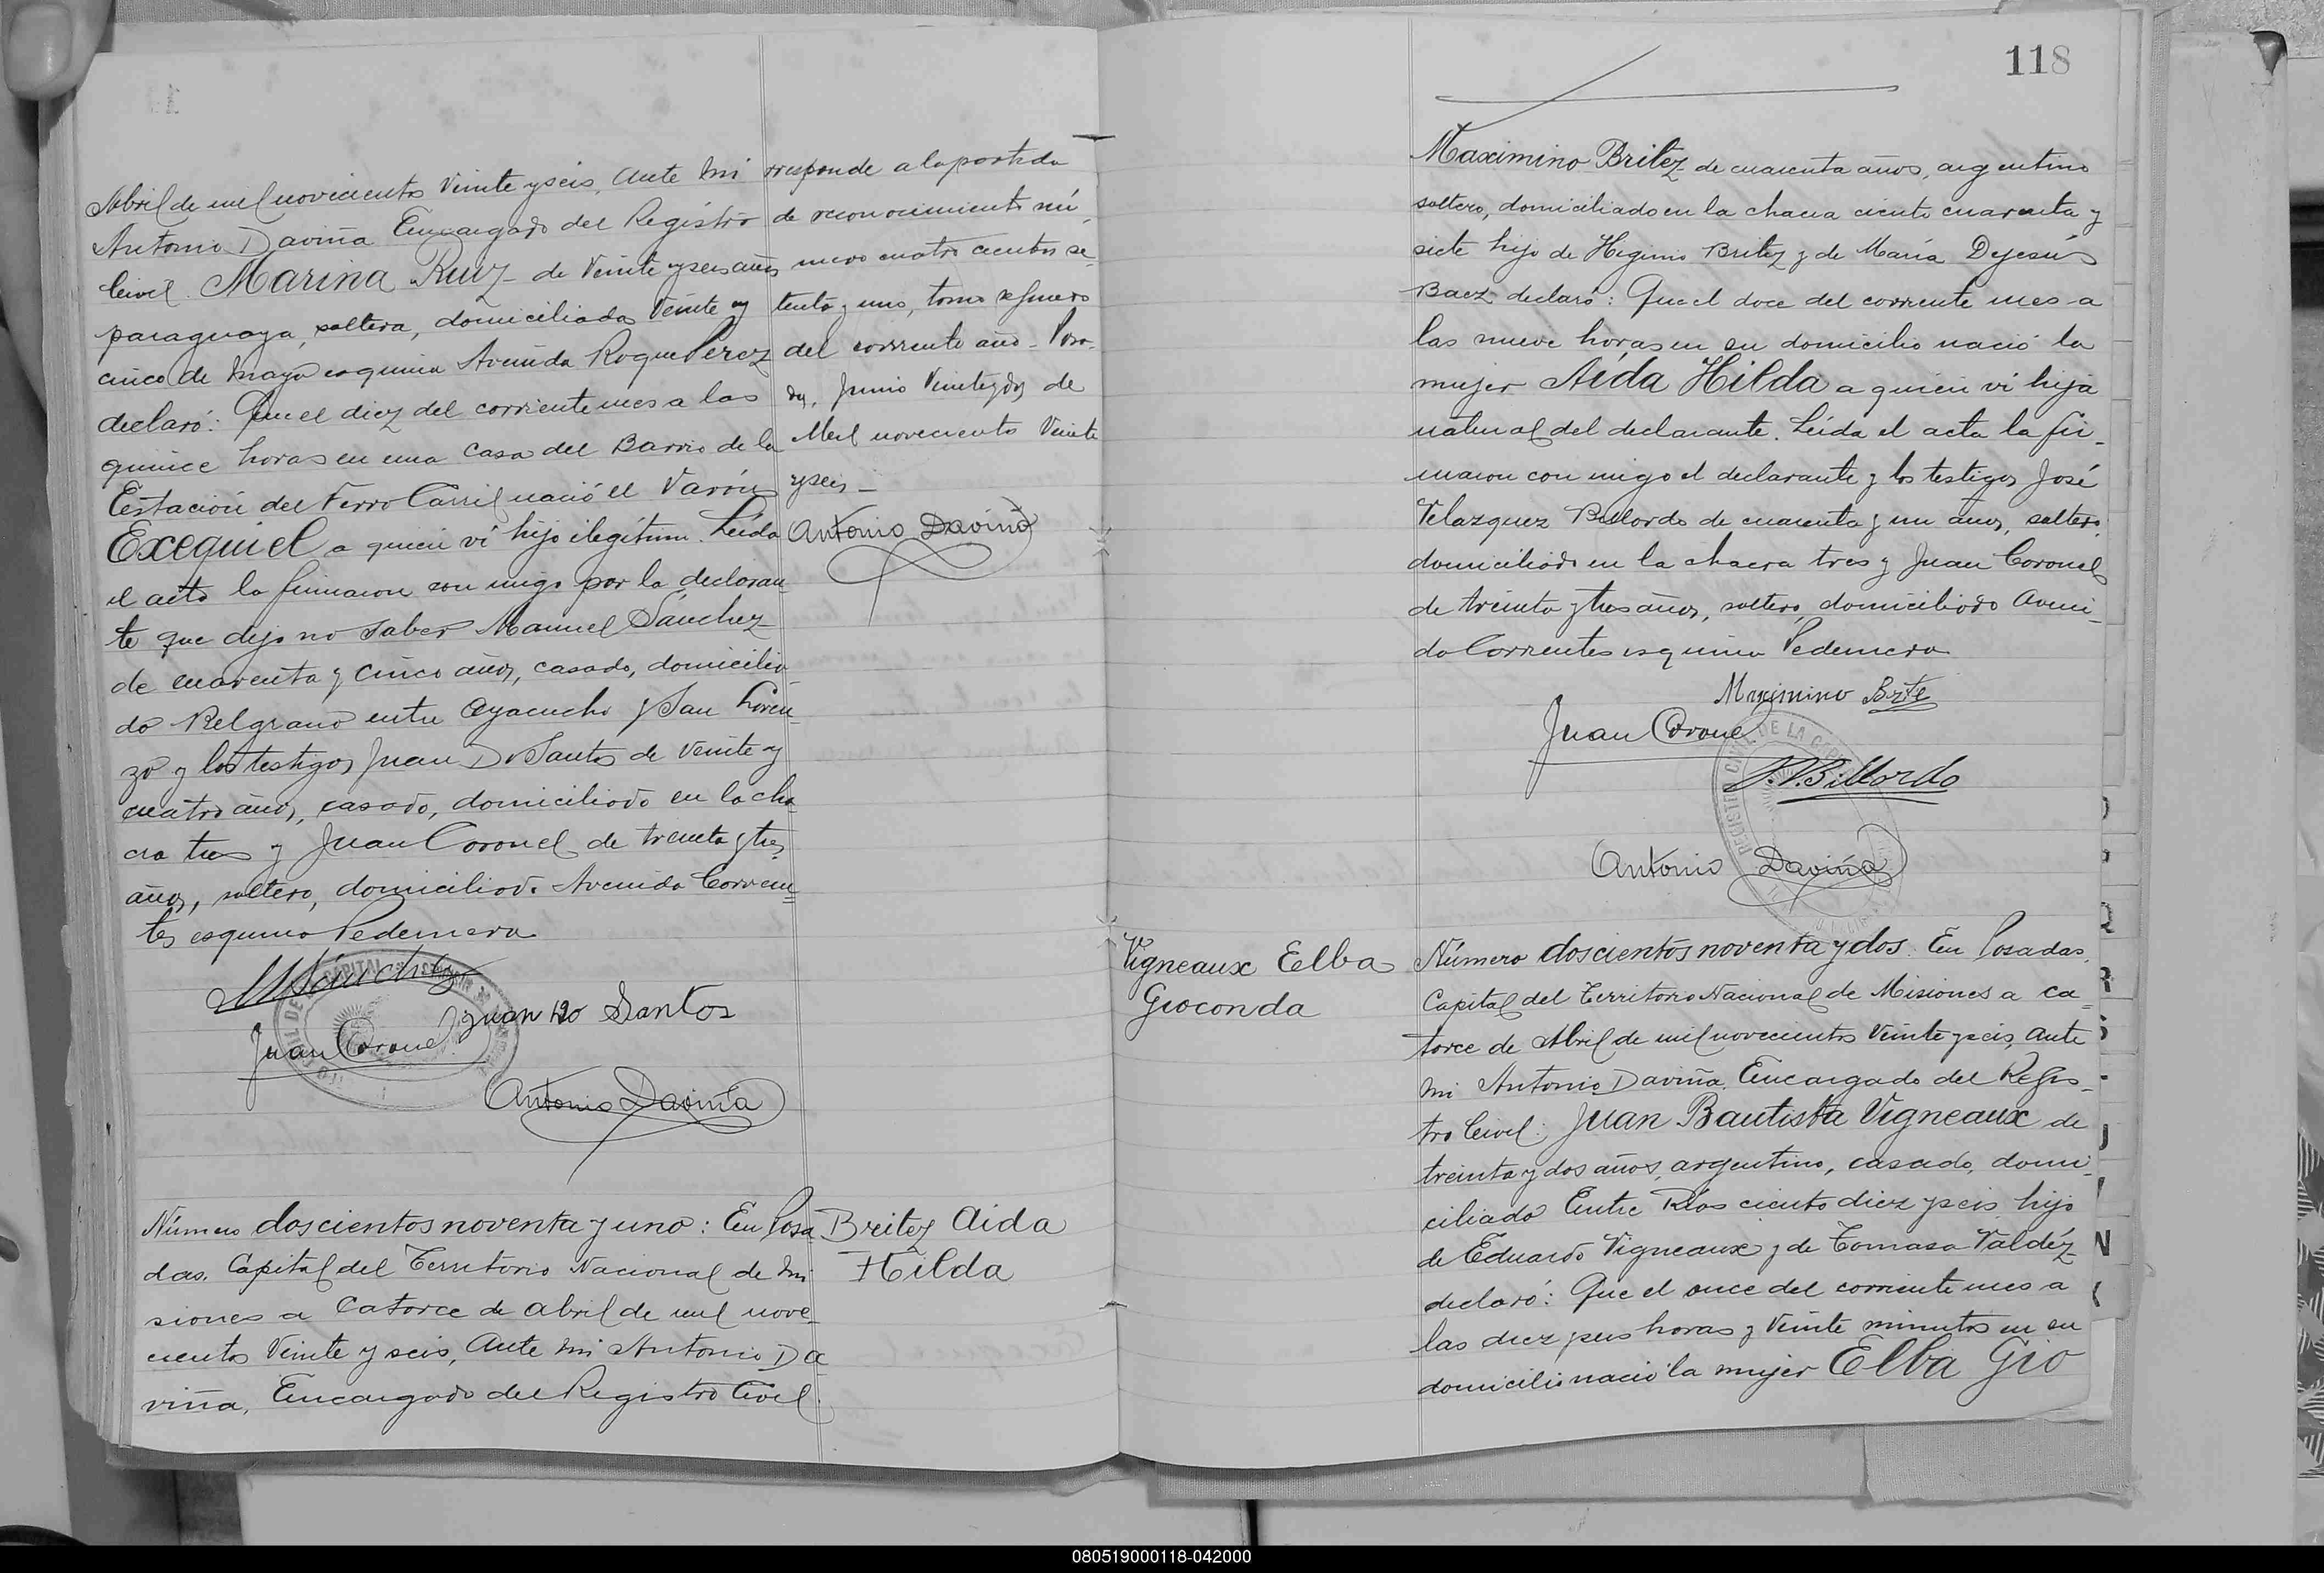 Abril de mil novecientos veinte y seis, ante mi
Antonio Daviña Encargado del Registro
Civil. Marina Ruiz de veinte y seis años
paraguaya, soltera, domiciliada Veinte y
cinco de Mayo esquina Avenida Roque Perez
declaró: Que el diez del corriente mes a las
quince horas en una casa del Barrio de la
Estación del Ferro Carril nació el varón
Exequiel a quien vi hijo ilegítimo. Leída
el acta la firmaron con migo por la declaran
te que dijo no saber Manuel Sánchez
de cuarenta y cinco años, casado, domicilia
do Belgrano entre Ayacucho y San Loren
zo y los testigos Juan D. Santos de veinte y
cuatro años, casado, domiciliado en la cha
cra tres y Juan Coronel de treinta y tres
años, soltero, domiciliado Avenida Corrien
tes esquina Pedernera
MSánchez
Juan Do Santos
Juan Corone
Antonio Daviña
Número doscientos noventa y uno: En Posa
das, Capital del Territorio Nacional de Mi
siones a catorce de abril de mil nove
cientos veinte y seis, ante mi Antonio Da
viña, Encargado del Registro Civil.
rresponde a la partida
de reconocimiento nú
mero cuatro cientos se
tenta y uno, tomo segundo
del corriente año. Posa
das, Junio veinte y dos de
Mil novecientos veinte
y seis
Antonio Daviña
Britez Aida
Hilda
118
Maximino Britez de cuarenta años, argentino
soltero, domiciliado en la chacra ciento cuarenta y
siete hijo de Higinio Britez y de María Dejesús
Baez declaró: Que el doce del corriente mes a
las nueve horas en su domicilio nació la
mujer Aída Hilda a quien vi hija
natural del declarante. Leída el acta la fir
maron con migo el declarante y los testigos José
Velazquez Billordo de cuarenta y un años, soltero,
domiciliado en la chacra tres y Juan Coronel
de treinta y tres años, soltero, domiciliado Aveni
da Corrientes esquina Pedernera
Maximino Brite
Juan Corone
Billordo
Antonio Daviña
Vigneaux Elba
Gioconda
Número doscientos noventa y dos. En Posadas,
Capital del Territorio Nacional de Misiones a ca
torce de Abril de mil novecientos veinte y seis, ante
mi Antonio Daviña, Encargado del Regis
tro Civil: Juan Bautista Vigneaux de
treinta y dos años, argentino, casado, domi
ciliado Entre Ríos ciento diez y seis hijo
de Eduardo Vigneaux y de Tomasa Valdéz
declaró: Que el once del corriente mes a
las diez y seis horas y veinte minutos en su
domicilio nació la mujer Elba Gio
080519000118-042000